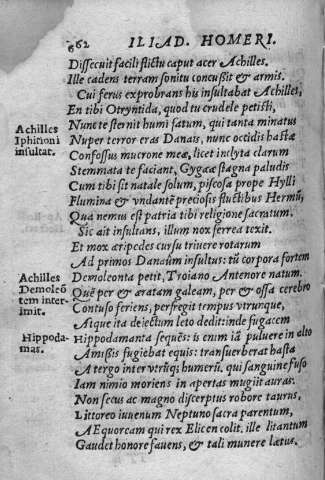 662 ILIAD. HOMERI.
Dissecuit facili flictu caput acer Achilles.
Ille cadens terram sonitu concußit & armis.
Cui ferus exprobrans his insultabat Achilles,
En tibi Otryntida, quod tu crudele petisti,
Achilles
Iphitioni
insultat.
Nunc te sternit humi fatum, qui tanta minatus
Nuper terror eras Danais, nunc occidis hastæ
Confossus mucrone meæ, licet inclyta clarum
Stemmata te faciant, Gygææ stagna paludis
Cum tibi sit natale solum, piscosa prope Hylli
Flumina & undantē preciosis fluctibus Hermū,
Qua nemus est patria tibi religione sacratum.
Sic ait insultans, illum nox ferrea texit.
Et mox æripedes cursu triuere rotarum
Ad primos Danaûm insultus: tū corpora fortem
Achilles
Demoleō
tem inter-
imit.
Demoleonta petit, Troiano Antenore natum.
Quē per & æratam galeam, per & ossa cerebro
Contuso feriens, perfregit tempus vtrunque,
Atque ita deiectum leto dedit: inde fugacem
Hippoda-
mas.
Hippodamanta sequēs: is enim iā puluere in alto
Amißis fugiebat equis: transuerberat hasta
A tergo inter vtrūq; humerū. qui sanguine fuso
Iam nimio moriens in apertas mugijt auras.
Non secus ac magno disceptus robore taurus,
Littoreo iuuenum Neptuno sacra parentum,
AEquoream qui rex Elicen colit. ille litantum
Gaudet honore fauens, & tali munere lætus.